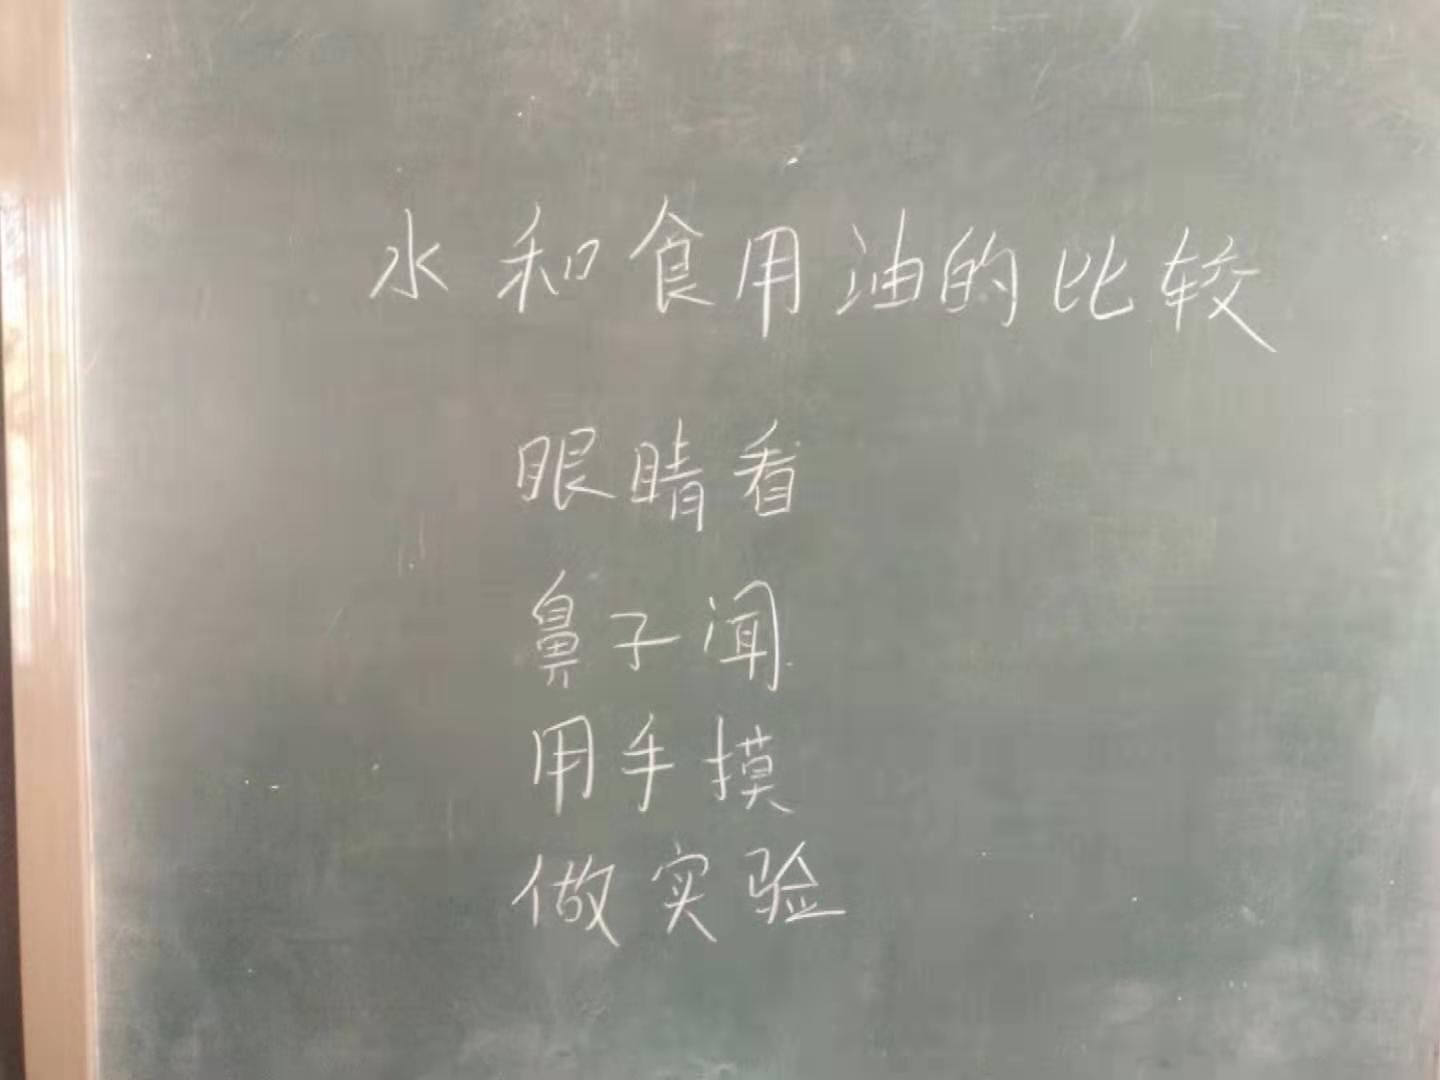 水和食用油的比较
眼睛看
鼻子闻
用手摸
做实验